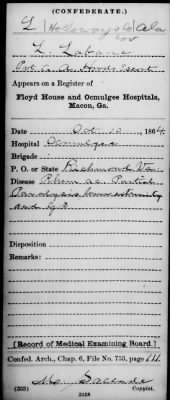 (CONFEDERATE.)
L | Holloway's Co | Ala
Cav
L. Labane
Pvt. Co. A
Appears on a Register of
Floyd House and Ocmulgee Hospitals,
Macon, Ga.
Date Oct. 10, 1864.
Hospital Ocmulgee
Brigade
P. O. or State Richmond Va.
Disease Rheum ac. Partial
Paralysis lower extremity
and
Disposition
Remarks:
[Record of Medical Examining Board.]
Confed. Arch., Chap. 6, File No. 753, page 111
(353)
Copyist.